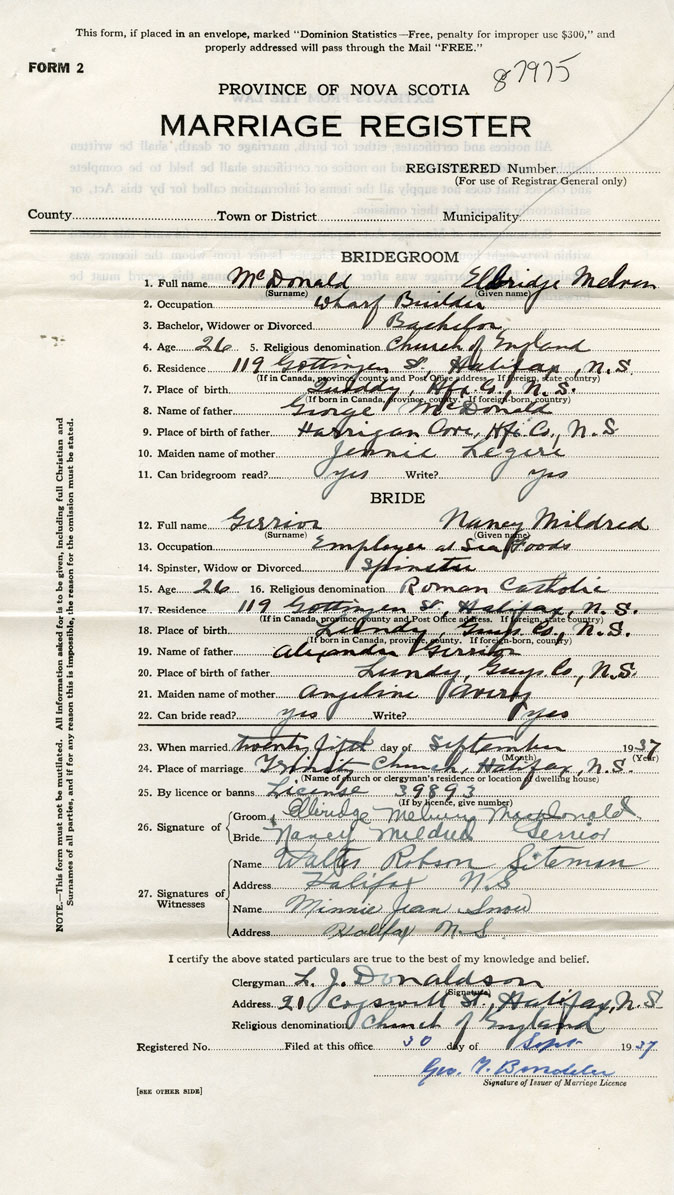 This form, if placed in an envelope, marked "Dominion Statistics—Free, penalty for improper use $300," and
properly addressed will pass through the Mail "FREE."
FORM 2
87975
PROVINCE OF NOVA SCOTIA
MARRIAGE REGISTER
REGISTERED Number
(For use of Registrar General only)
County Town or District Municipality
BRIDEGROOM
1. Full name McDonald Elbridge Melvon
(Surname) (Given name)
2. Occupation Wharf Builder
3. Bachelor, Widower or Divorced Bachelor
4. Age 26 5. Religious denomination Church of England
6. Residence 119 Gottingen St, Halifax, N.S.
(If in Canada, province, county and Post Office address. If foreign, state country)
7. Place of birth Hfx. Co., N.S.
(If born in Canada, province, county. If foreign-born, country)
8. Name of father George McDonald
9. Place of birth of father Harrigan Cove, Hfx. Co., N.S
10. Maiden name of mother Jennie Legere
11. Can bridegroom read? yes Write? yes
BRIDE
12. Full name Gerrior Nancy Mildred
(Surname) (Given name)
13. Occupation Employee at Sea Foods
14. Spinster, Widow or Divorced Spinster
15. Age 26 16. Religious denomination Roman Catholic
17. Residence 119 Gottingen St, Halifax, N.S.
(If in Canada, province, county and Post Office address. If foreign, state country)
18. Place of birth Lundy, Guys. Co., N.S.
(If born in Canada, province, county. If foreign-born, country)
19. Name of father Alexander Gerrior
20. Place of birth of father Lundy, Guys. Co., N.S.
21. Maiden name of mother Angeline Avery
22. Can bride read? yes Write? yes
23. When married twenty fifth day of September 1937
(Month) (Year)
24. Place of marriage Trinity Church, Halifax, N.S.
(Name of church or clergyman's residence or location of dwelling house)
25. By licence or banns License 39893
(If by licence, give number)
26. Signature of
Groom Elbridge MacDonald
Bride Nancy Mildred Gerrior
27. Signatures of Witnesses
Name Walter Robson Siteman
Address Halifax N.S
Name Minnie Jean Snow
Address Halifax N.S.
I certify the above stated particulars are true to the best of my knowledge and belief.
Clergyman L. J. Donaldson
(Signature)
Address 21 Cogswell St., Halifax, N.S.
Religious denomination Church of England
Registered No. Filed at this office 30 day of Sept 1937
Geo.
Signature of Issuer of Marriage Licence
[SEE OTHER SIDE]
NOTE.—This form must not be mutilated. All information asked for is to be given, including full Christian and
Surnames of all parties, and if for any reason this is impossible, the reason for the omission must be stated.